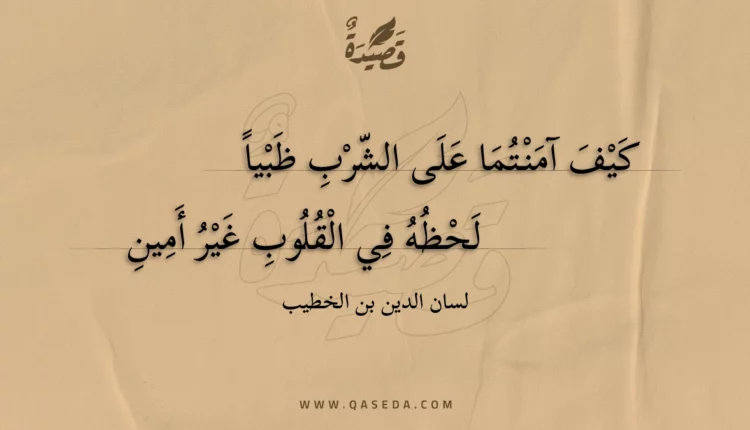 قَصِيدَةٌ
كَيْفَ آمَنْتُمَا عَلَى الشّرْبِ ظَبْياً
لَحْظُهُ فِي الْقُلُوبِ غَيْرُ أَمِينِ
لسان الدين بن الخطيب
WWW.QASEDA.COM